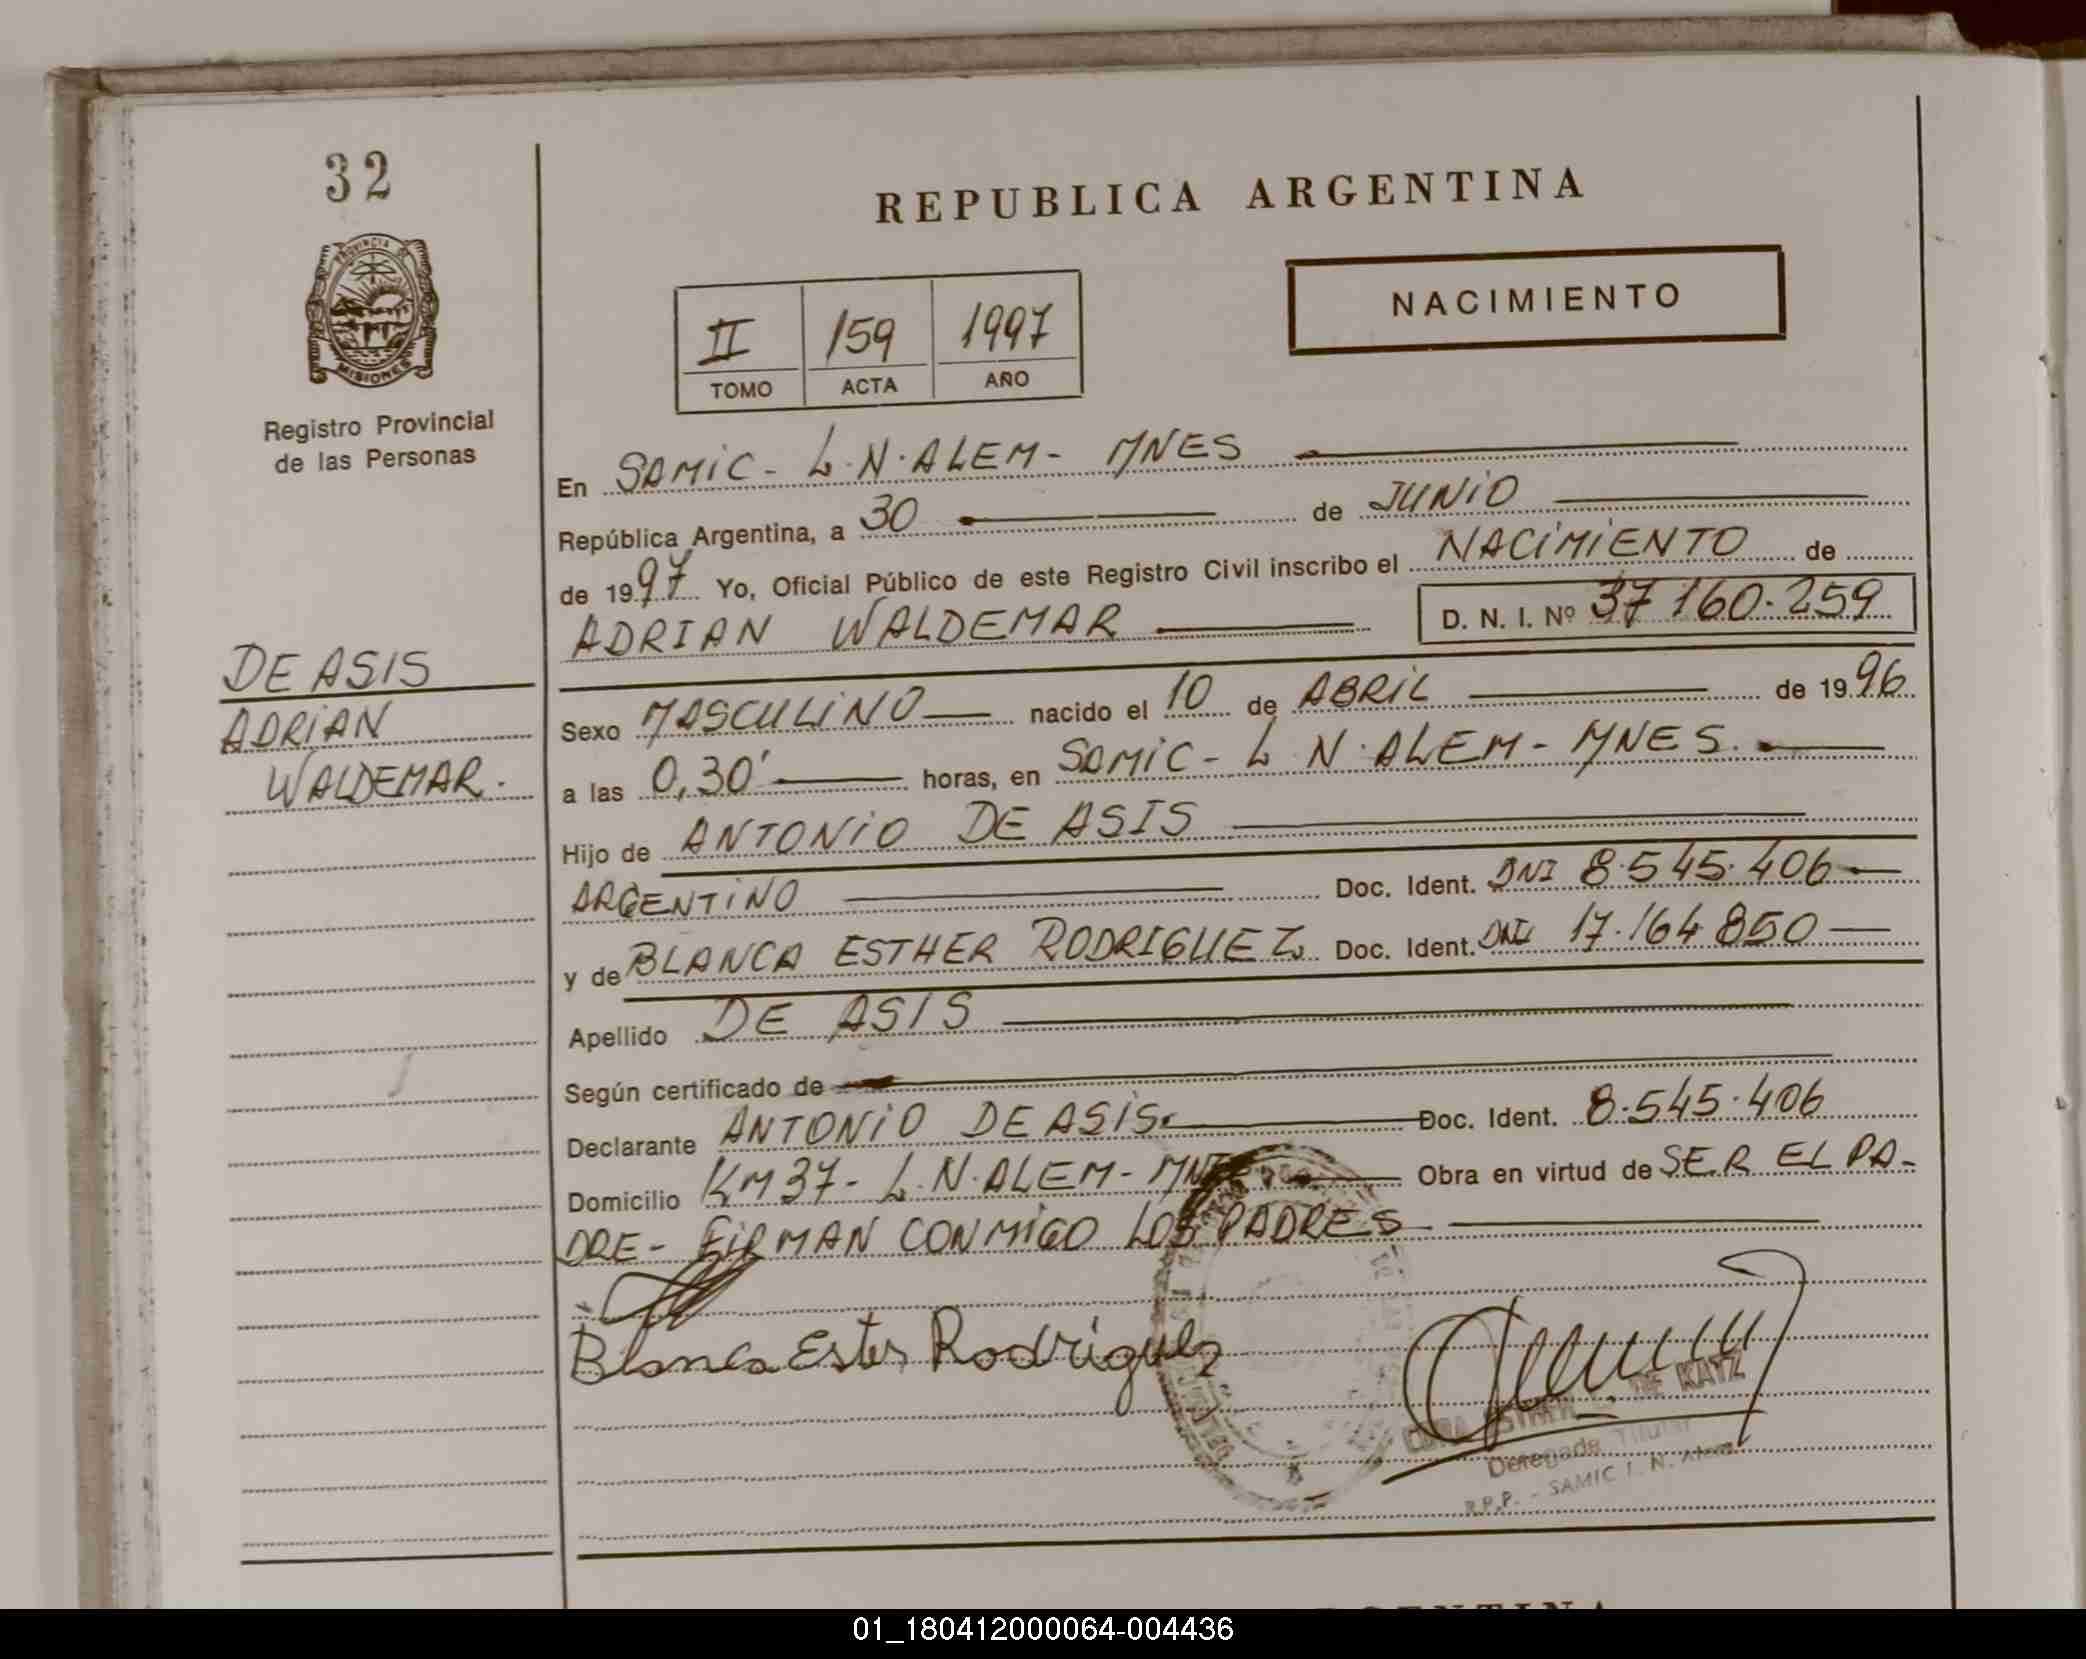 32
REPUBLICA ARGENTINA
PROVINCIA DE
MISIONES
NACIMIENTO
II 159 1997
TOMO ACTA AÑO
Registro Provincial
de las Personas
En SAMIC - L.N. ALEM - MNES
República Argentina, a 30 de JUNIO
de 1997 Yo, Oficial Público de este Registro Civil inscribo el NACIMIENTO de
ADRIAN WALDEMAR D. N. I. Nº 37 160.259
DE ASIS
ADRIAN
WALDEMAR.
Sexo MASCULINO nacido el 10 de ABRIL de 1996
a las 0,30' horas, en SAMIC - L N. ALEM - MNES.
Hijo de ANTONIO DE ASIS
ARGENTINO Doc. Ident. DNI 8.545.406
y de BLANCA ESTHER RODRIGUEZ Doc. Ident. DNI 17.164 850
Apellido DE ASIS
Según certificado de
Declarante ANTONIO DE ASIS. Doc. Ident. 8.545.406
Domicilio KM 37 - L.N. ALEM - MNES Obra en virtud de SER EL PA-
DRE - FIRMAN CONMIGO LOS PADRES
Blanca Ester Rodriguez
DE KATZ
Delegada Titular
R.P.P. - SAMIC L. N. Alem
01_180412000064-004436